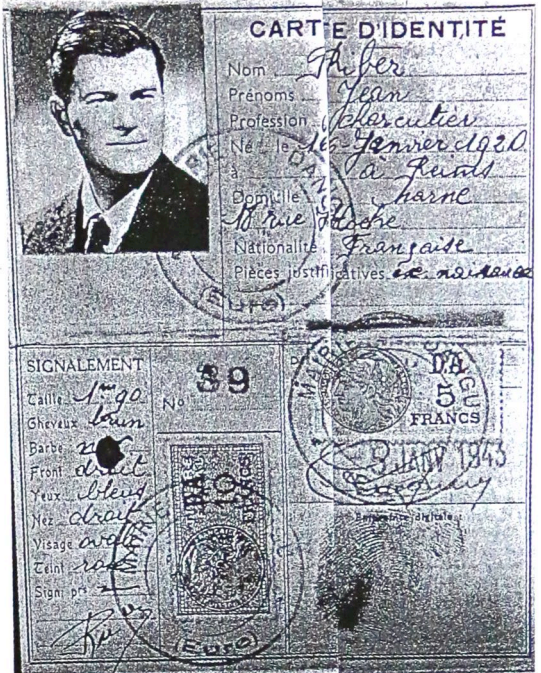 CARTE D'IDENTITÉ
Nom Thiber
Prénoms Jean
Profession charcutier
Né le 16 Janvier 1920
à à Reims
Domicile Marne
18 rue Hoche
Nationalité Française
Pièces justificatives
MAIRIE
(Eure)
SIGNALEMENT
Taille 1m90
Cheveux brun
Barbe
Front droit
Yeux bleus
Nez droit
Visage oval
Teint
Sign. prs
No 39
DA
10
FRANCS
MAIRIE
(Eure)
MAIRIE
DA
5
FRANCS
3 JANV 1943
Empreinte digitale